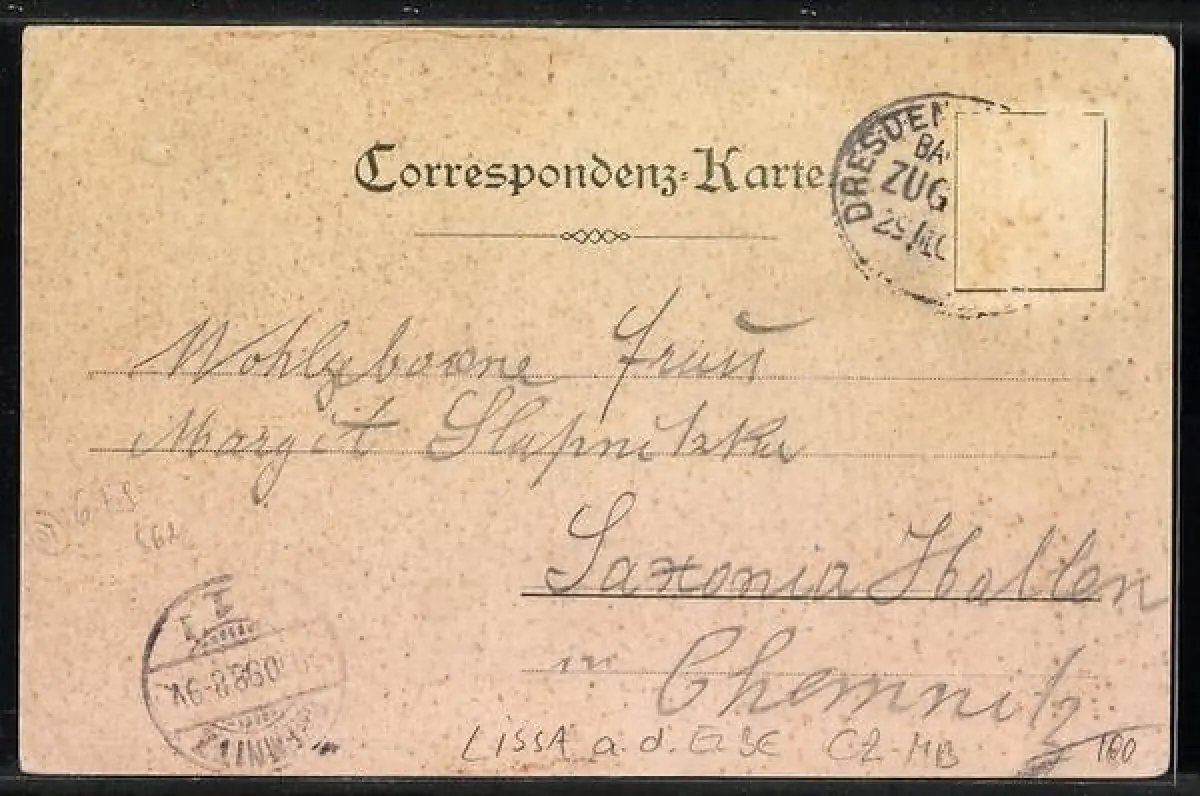 Correspondenz-Karte.
DRESDEN
BA
ZUG
29/
Wohlgeborne Frau
Margit Slapnitzka
Saxonia Hallen
in Chemnitz
LISSA a.d. ELBE CZ-MB
160